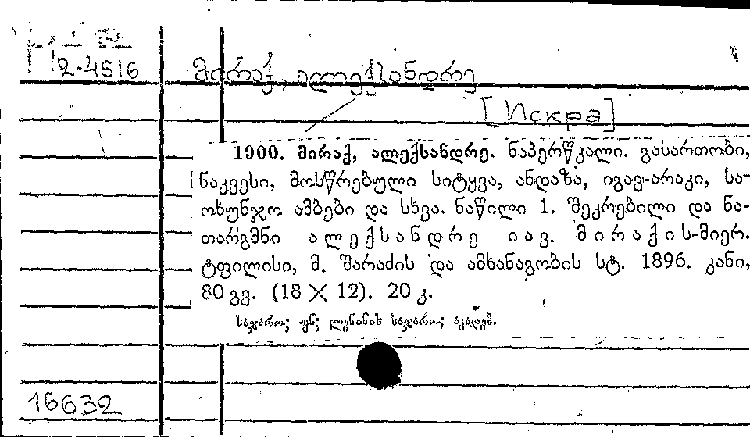 2-4516
მირაქ, ალექსანდრე
[Искра]
1000. მირაქ, ალექსანდრე. ნაპერწკალი. გასართობი,
ნაკვესი, მოსწრებული სიტყვა, ანდაზა, იგავ-არაკი, სა-
ოხუნჯო ამბები და სხვა. ნაწილი 1. შეკრებილი და ნა-
თარგმნი ალექსანდრე იავ. მირაქის-მიერ.
ტფილისი, მ. შარაძის და ამხანაგობის სტ. 1896. კანი,
80 გვ. (18 X 12). 20 კ.
საჯარო; უნ; ლენინის საჯარო; აკადემ.
16632